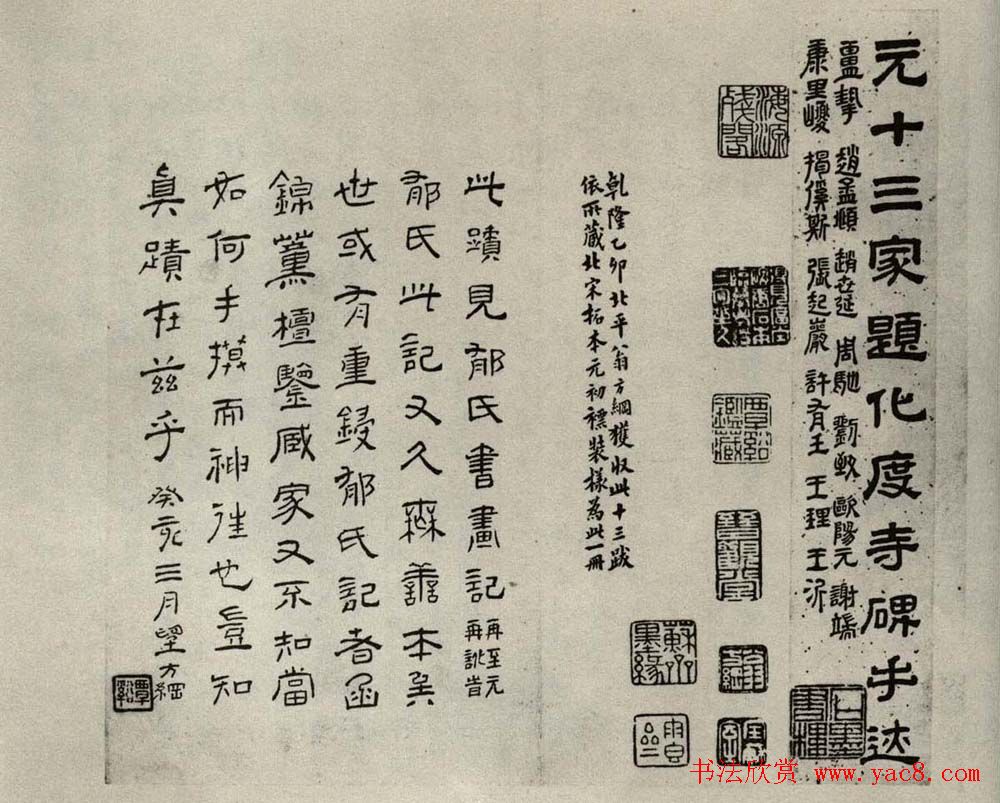 元十三家題化度寺碑手迹
盧摯 趙孟頫 趙世延 周馳 劉致 歐陽元 謝端
康里巙 揭傒斯 張起巖 許有壬 王理 王沂
海源殘閣
覃谿鑑藏
蘇齋墨緣
乾隆乙卯北平翁方綱獲收此十三跋
依所藏北宋拓本元初褾裝樣為此一冊
此蹟見郁氏書畫記 再至元再訛昔
郁氏此記又久無善本矣
世或有重鋟郁氏記者函
錦薰檀鑒臧家又不知當
如何手摸而神往也豈知
真蹟在兹乎 癸亥三月望方綱
覃谿
书法欣赏 www.yac8.com